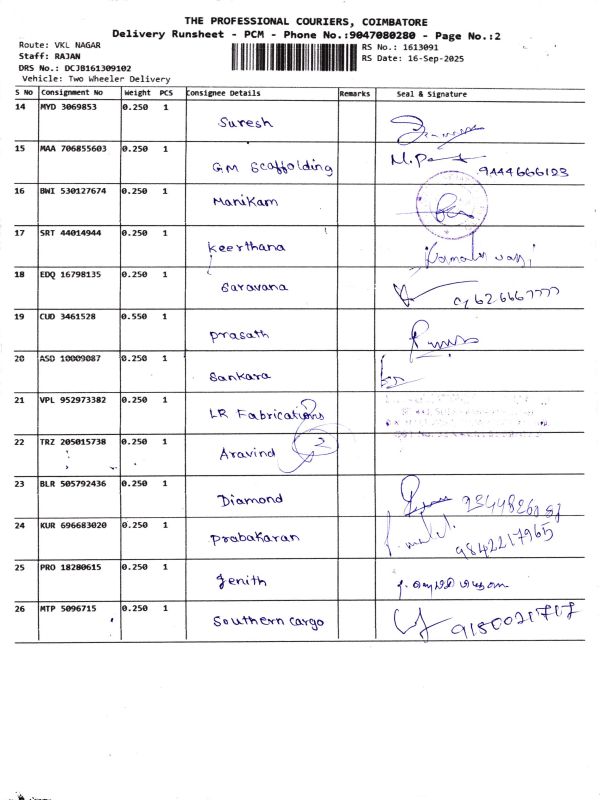 THE PROFESSIONAL COURIERS, COIMBATORE
Delivery Runsheet - PCM - Phone No.:9047080280 - Page No.:2
Route: VKL NAGAR
RS No.: 1613091
Staff: RAJAN
RS Date: 16-Sep-2025
DRS No.: DCJB161309102
Vehicle: Two Wheeler Delivery
S No Consignment No Weight PCS Consignee Details Remarks Seal & Signature
14 MYD 3069853 0.250 1 Suresh
15 MAA 706855603 0.250 1 GM Scaffolding 9444666123
16 BWI 530127674 0.250 1 Manikam
17 SRT 44014944 0.250 1 Keerthana
18 EDQ 16798135 0.250 1 Saravana
19 CUD 3461528 0.550 1 Prasath
20 ASD 10009087 0.250 1 Sankara
21 VPL 952973382 0.250 1 LR Fabrications
22 TRZ 205015738 0.250 1 Aravind 2
23 BLR 505792436 0.250 1 Diamond
24 KUR 696683020 0.250 1 Prabakaran 9842217965
25 PRO 18280615 0.250 1 Zenith
26 MTP 5096715 0.250 1 Southern cargo